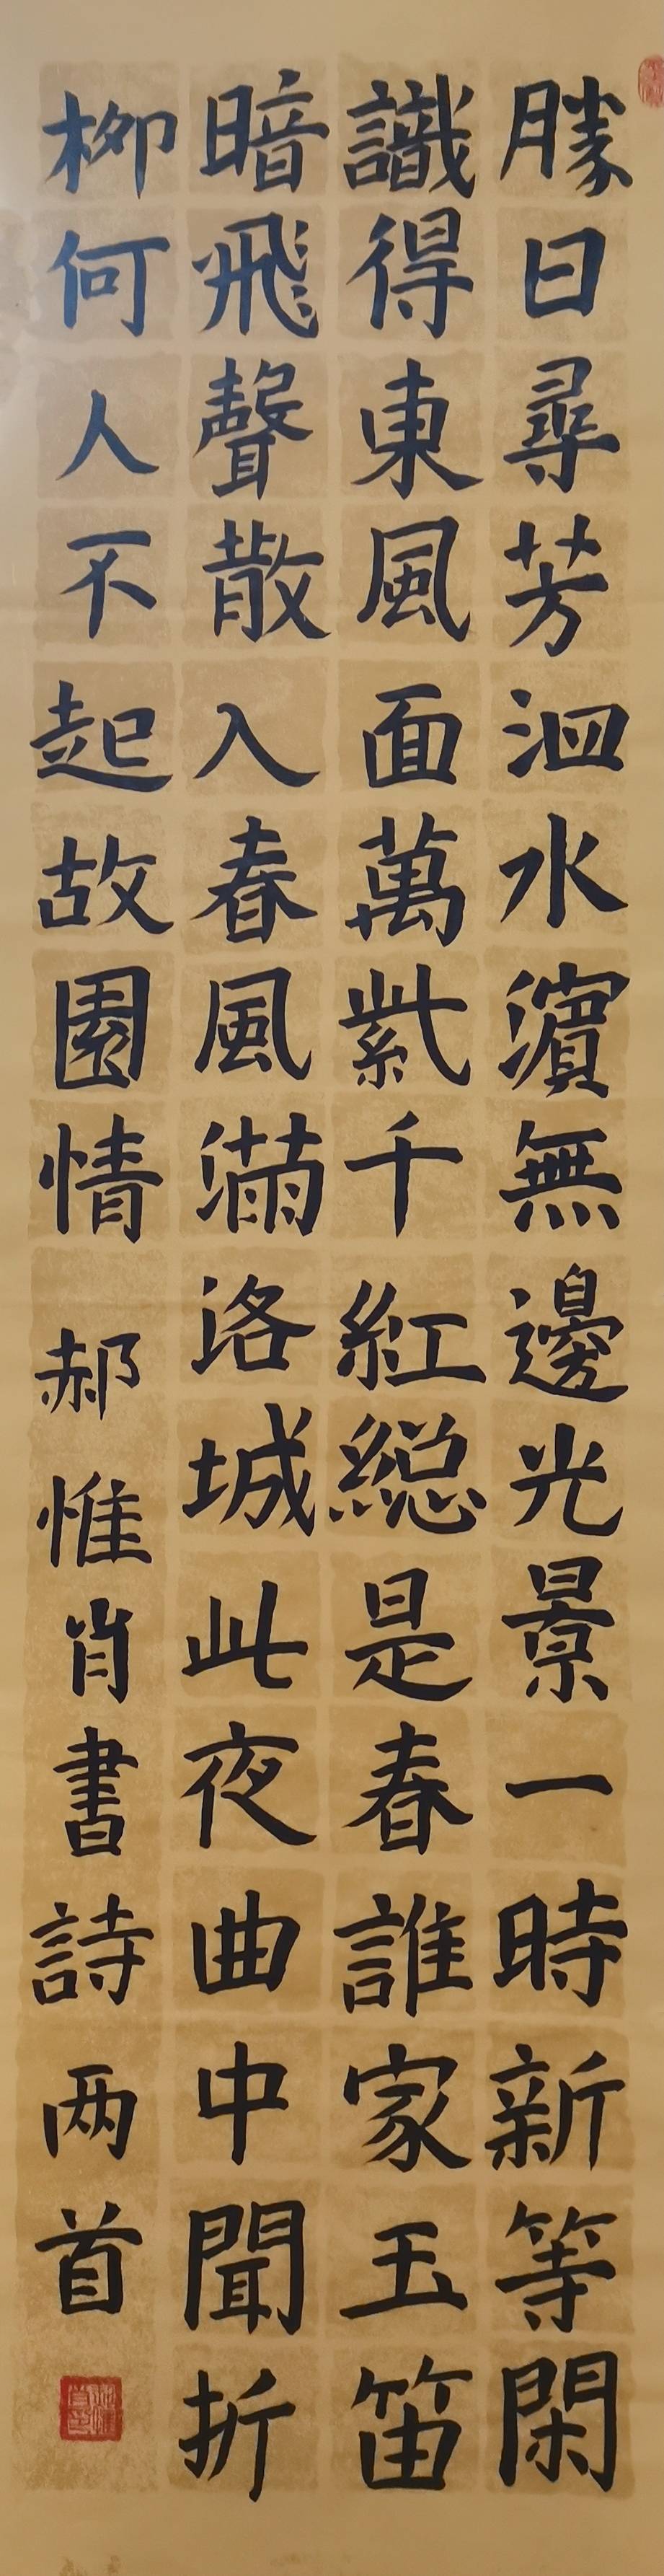 勝日尋芳泗水濱無邊光景一時新等閑
識得東風面萬紫千紅總是春誰家玉笛
暗飛聲散入春風滿洛城此夜曲中聞折
柳何人不起故園情郝惟肖書詩两首